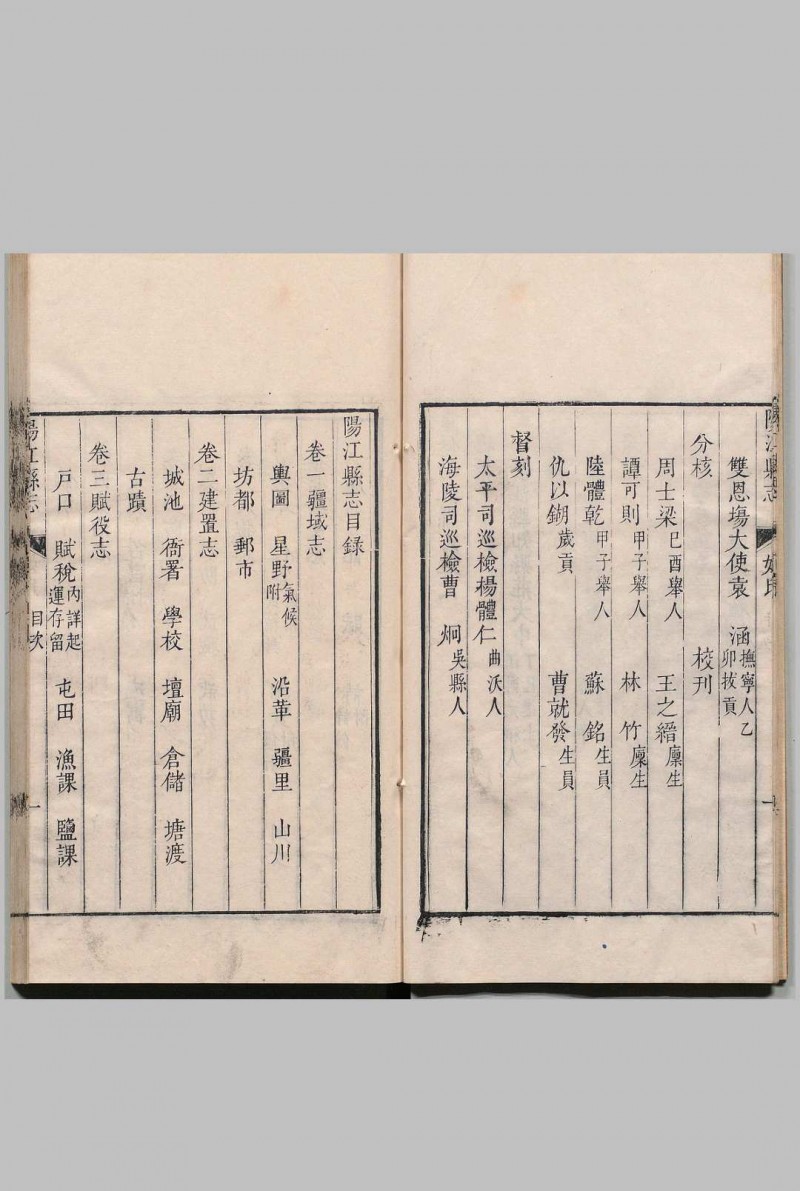 陽江縣志
雙恩塲大使袁　涵撫寧人乙卯拔貢
分核　校刊
周士梁己酉舉人　王之縉廩生
譚可則甲子舉人　林　竹廩生
陸體乾甲子舉人　蘇　銘生員
仇以鍸歲貢　曹就發生員
督刻
太平司巡檢楊體仁曲沃人
海陵司巡檢曹　炯吳縣人
陽江縣志目録
卷一疆域志
輿圖　星野氣候附　沿革　疆里　山川
坊都　郵市
卷二建置志
城池　衙署　學校　壇廟　倉儲　塘渡
古蹟
卷三賦役志
戶口　賦稅內詳起運存留　屯田　漁課　鹽課
陽江縣志　目次　一